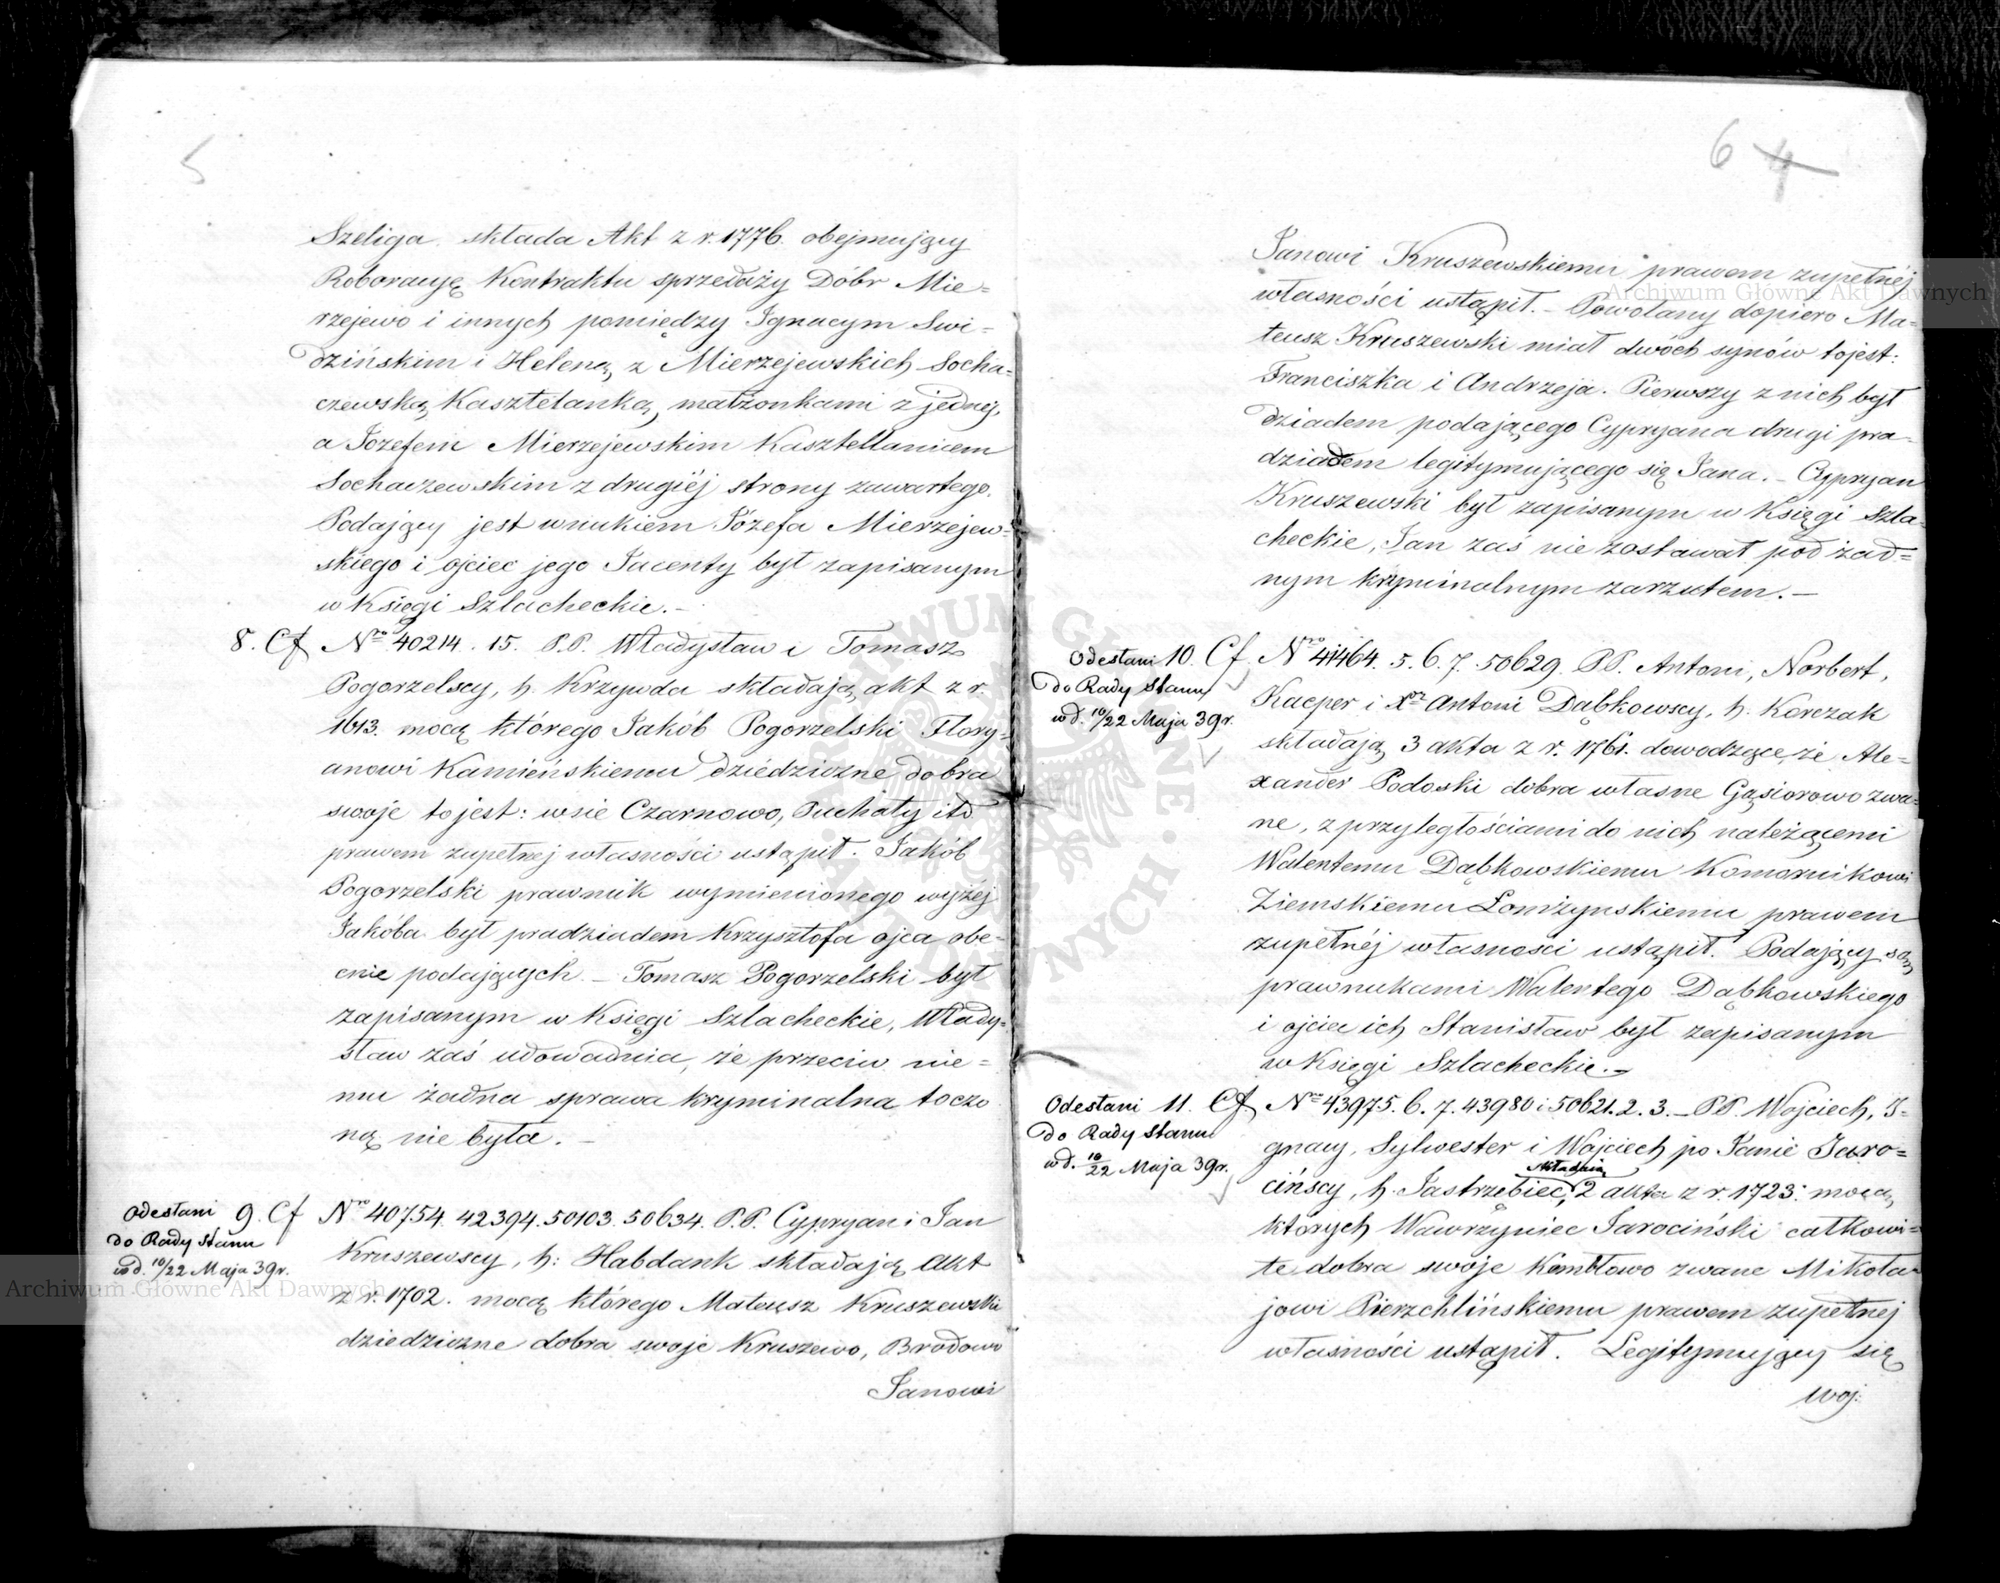 5
Szeliga składa Akt z r. 1776. obejmujący
Roboracyę Kontraktu sprzedaży Dóbr Mie=
rzejewo i innych pomiędzy Ignacym Swi=
dzińskim i Heleną z Mierzejewskich Socha=
czewską Kasztelanką, małżonkami z jednéj,
a Józefem Mierzejewskim Kasztellanicem
Sochaczewskim z drugiéj strony zawartego.
Podający jest wnukiem Józefa Mierzejew=
skiego i ojciec jego Jacenty był zapisanym
w Księgi Szlacheckie. –
8. Cf Nro 40214. 15. P.P. Władysław i Tomasz
Pogorzelscy, h. Krzywda składają akt z r.
1613. mocą którego Jakób Pogorzelski Flory=
anowi Kamieńskiemu dziedziczne dobra
swoje to jest: wsie Czarnowo, Puchały itd
prawem zupełnej własności ustąpił. Jakób
Pogorzelski prawnuk wymienionego wyżéj
Jakóba był pradziadem Krzysztofa ojca obe=
cnie podających. – Tomasz Pogorzelski był
zapisanym w Księgi Szlacheckie, Włady=
sław zaś udowadnia, że przeciw nie=
mu żadna sprawa kryminalna toczo
ną nie była. –
Odesłani
do Rady Stanu
w d. 10/22 Maja 39r.
9. Cf Nro 40754. 42394. 50103. 50634. P.P. Cypryan i Jan
Kruszewscy, h: Habdank składają akt
z r. 1702. mocą którego Mateusz Kruszewski
dziedziczne dobra swoje Kruszewo, Brodowo
Janowi
6 4
Janowi Kruszewskiemu prawem zupełnéj
własności ustąpił. – Powołany dopiero Ma=
teusz Kruszewski miał dwóch synów to jest:
Franciszka i Andrzeja. Pierwszy z nich był
dziadem podającego Cypryana drugi pra=
dziadem legitymującego się Jana. – Cypryan
Kruszewski był zapisanym w Księgi Szla=
checkie, Jan zaś nie zostawał pod żad=
nym kryminalnym zarzutem. –
Odesłani
do Rady Stanu
w d. 10/22 Maja 39r.
10. Cf. Nro 41464. 5. 6. 7. 50629. P.P. Antoni, Norbert,
Kacper i Xdz Antoni Dąbkowscy, h. Korczak
składają 3 akta z r. 1761. dowodzące, że Ale=
xander Podoski dobra własne Gąsiorowo zwa=
ne, z przyległościami do nich należącemi
Walentemu Dąbkowskiemu Komornikowi
Ziemskiemu Łomżyńskiemu prawem
zupełnéj własności ustąpił. Podający są
prawnukami Walentego Dąbkowskiego
i ojciec ich Stanisław był zapisanym
w Księgi Szlacheckie. –
Odesłani
do Rady Stanu
w d. 10/22 Maja 39r.
11. Cf Nro 43975. 6. 7. 43980 i 50621. 2. 3. – P.P. Wojciech, I=
gnacy, Sylwester i Wojciech po Janie Jaro=
cińscy, h. Jastrzębiec, składają 2 akta z r. 1723. mocą
których Wawrzyniec Jarociński całkowi=
te dobra swoje Kombłowo zwane Mikoła=
jowi Pierzchlińskiemu prawem zupełnej
własności ustąpił. Legitymujący się
Woj:
Archiwum Główne Akt Dawnych
Archiwum Główne Akt Dawnych
ARCHIWUM GŁÓWNE AKT DAWNYCH